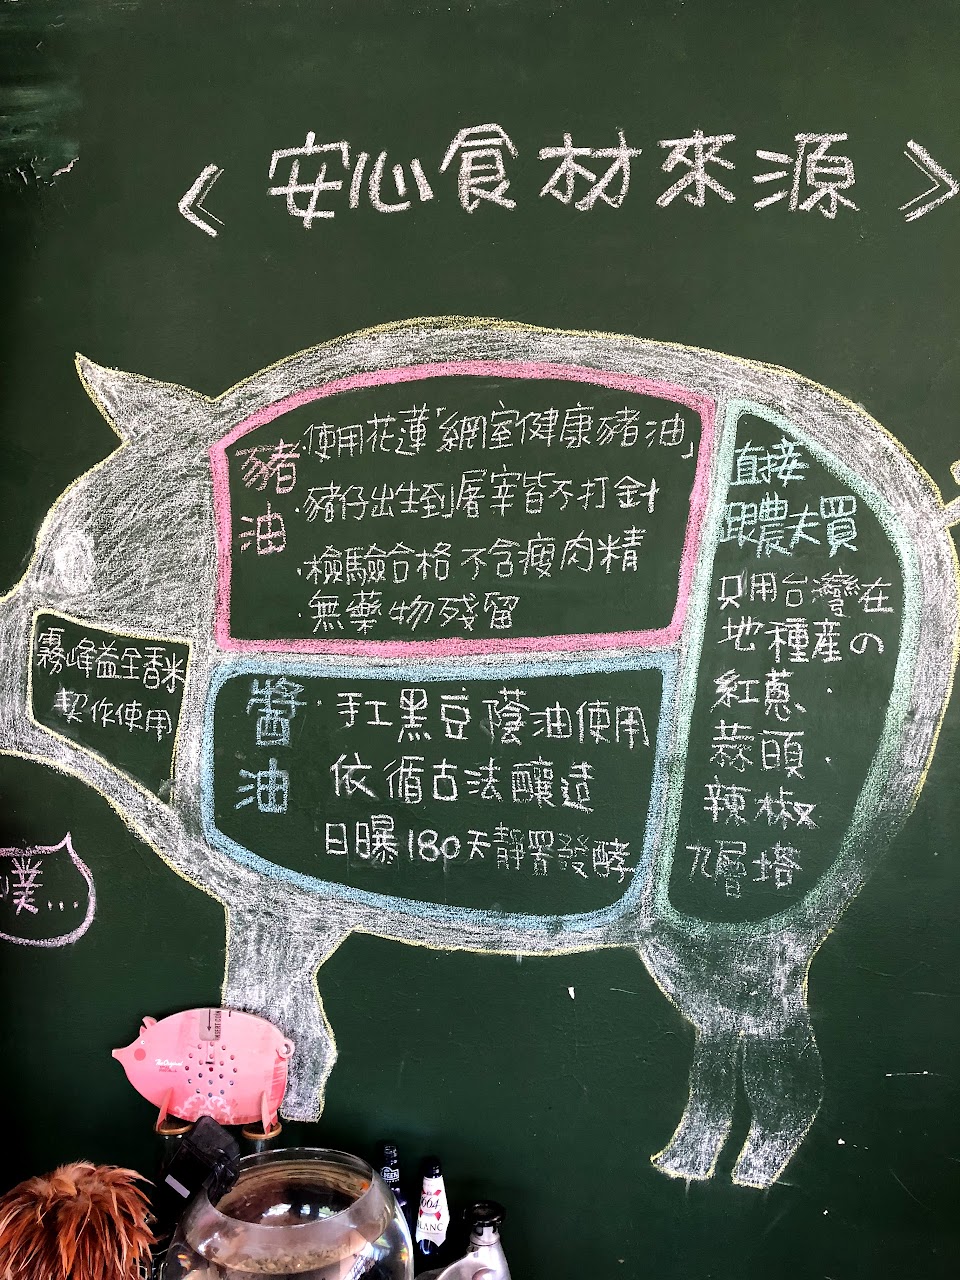 《 安心食材來源 》
豬油
·使用花蓮「網室健康豬油」
·豬仔出生到屠宰皆不打針
·檢驗合格不含瘦肉精
·無藥物殘留
直接
跟農夫買
只用台灣在
地種產の
紅蔥·
蒜頭·
辣椒
九層塔
霧峰益全香米
契作使用
醬油
·手工黑豆蔭油使用
依循古法釀造
日曝180天靜置發酵
噗...
INSERT COIN
The Original
1664
BLANC